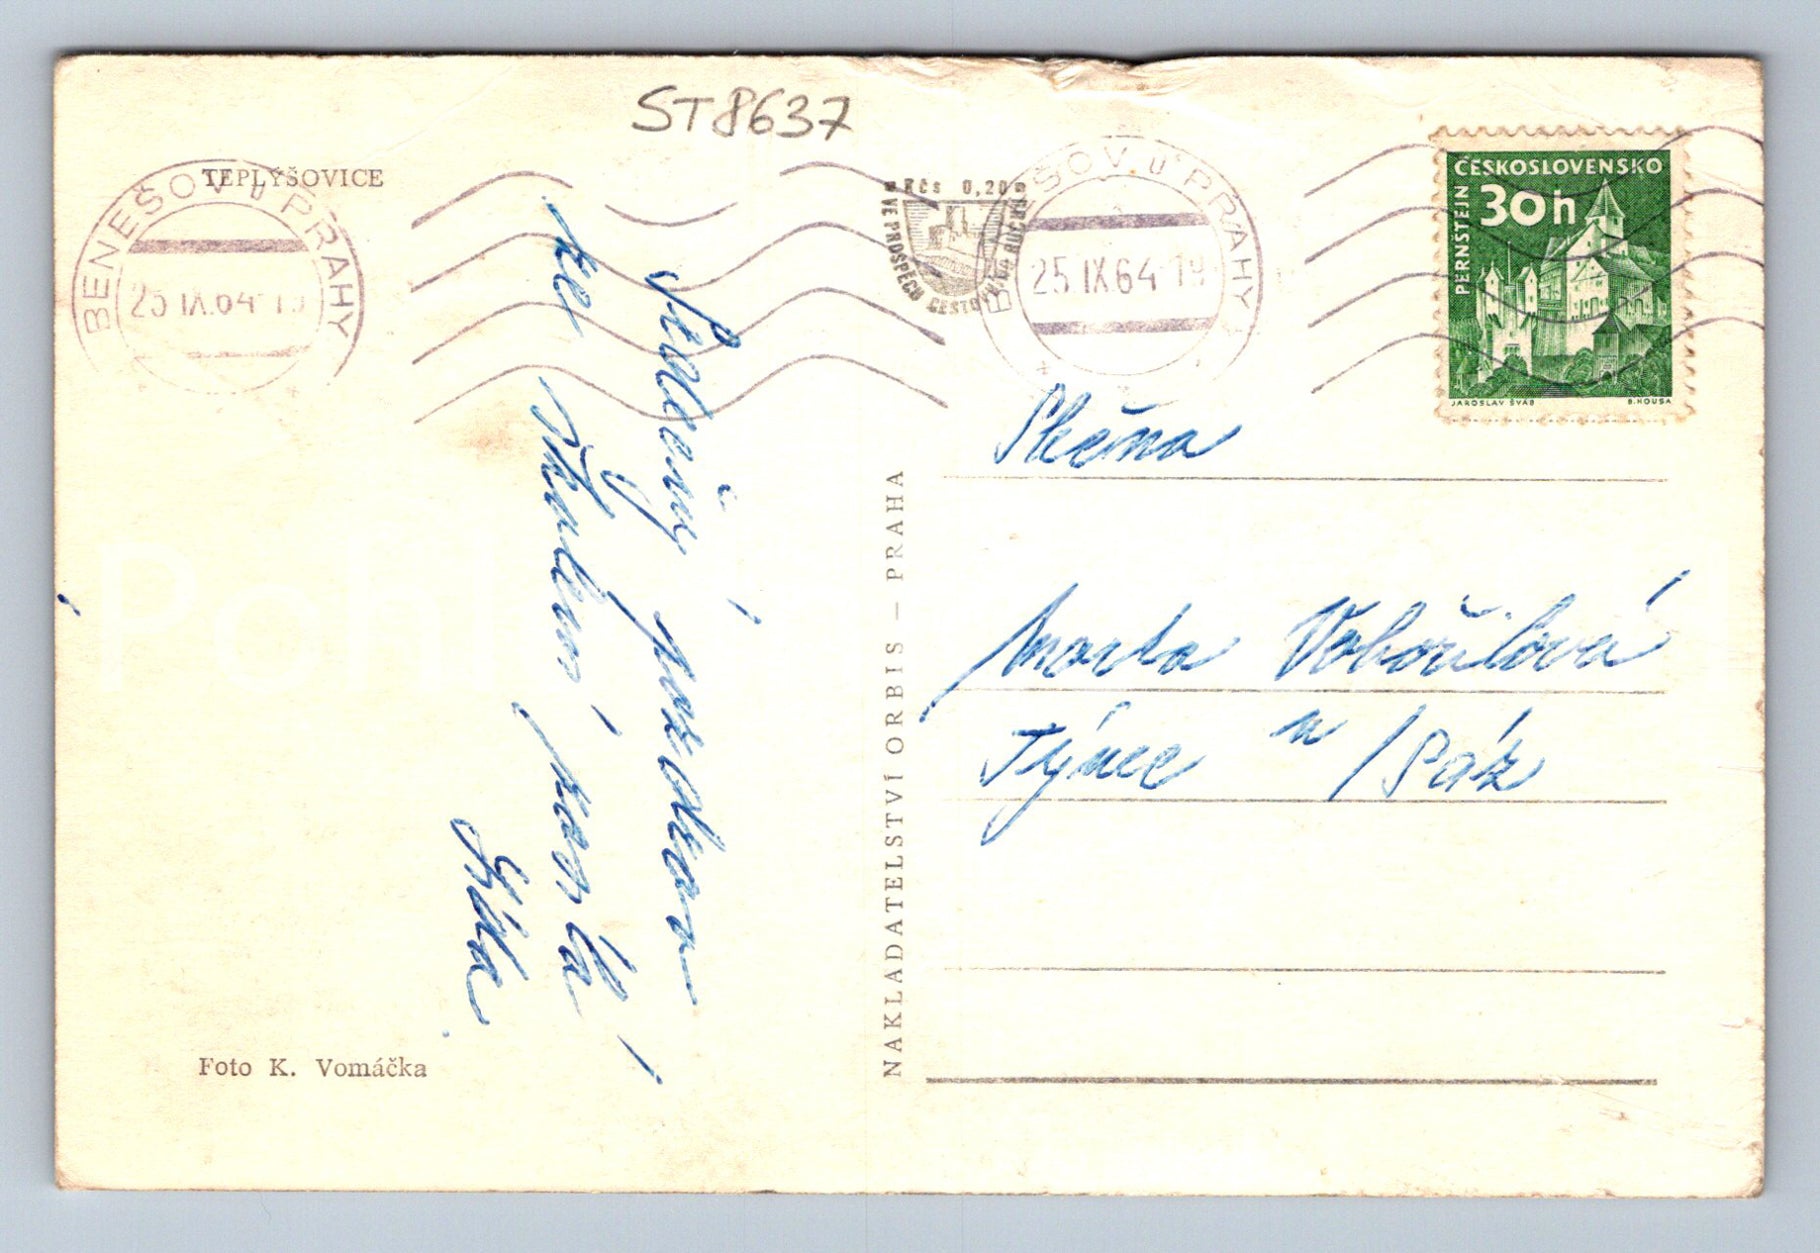 ST8637
TEPLÝŠOVICE
BENEŠOV U PRAHY
25.IX.64-19
Kčs 0,20
VE PROSPĚCH CESTOVNÍHO RUCHU
BENEŠOV U PRAHY
25.IX.64-19
ČESKOSLOVENSKO
30h
PERNŠTEJN
JAROSLAV ŠVAB
B. HOUSA
Srdečný pozdrav
ze školení
Slečna
Marta Vohořilová
Týnec n/Sáz
NAKLADATELSTVÍ ORBIS — PRAHA
Foto K. Vomáčka